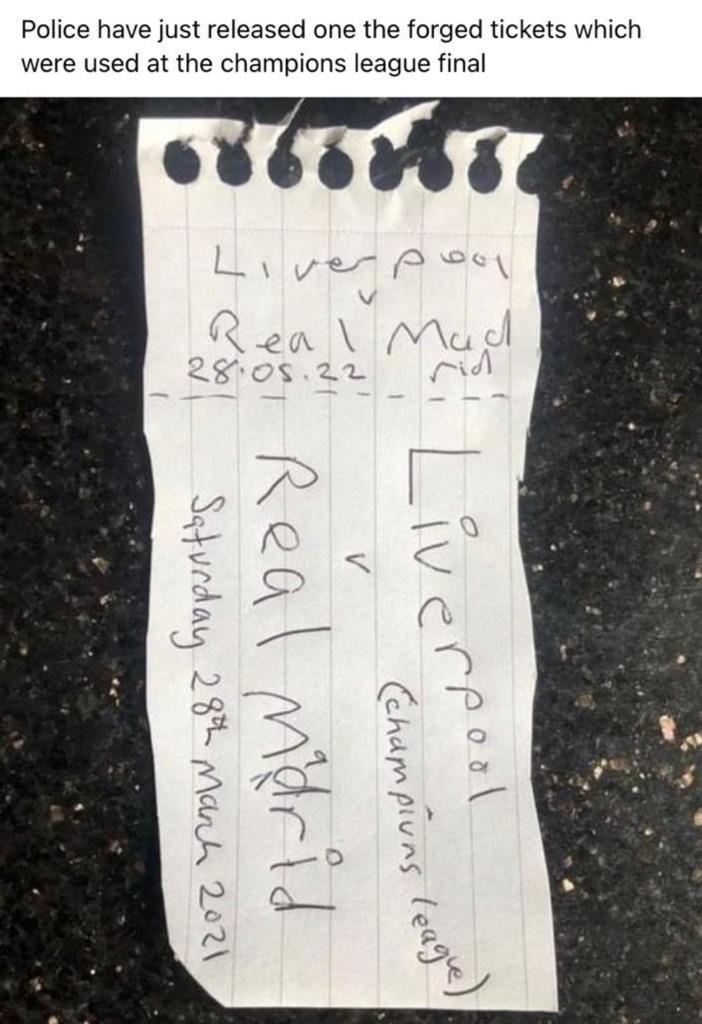 Police have just released one the forged tickets which
were used at the champions league final
Liverpool
v
Real Mad
rid
28.05.22
Liverpool
(champiuns league)
v
Real Madrid
Saturday 28th March 2021